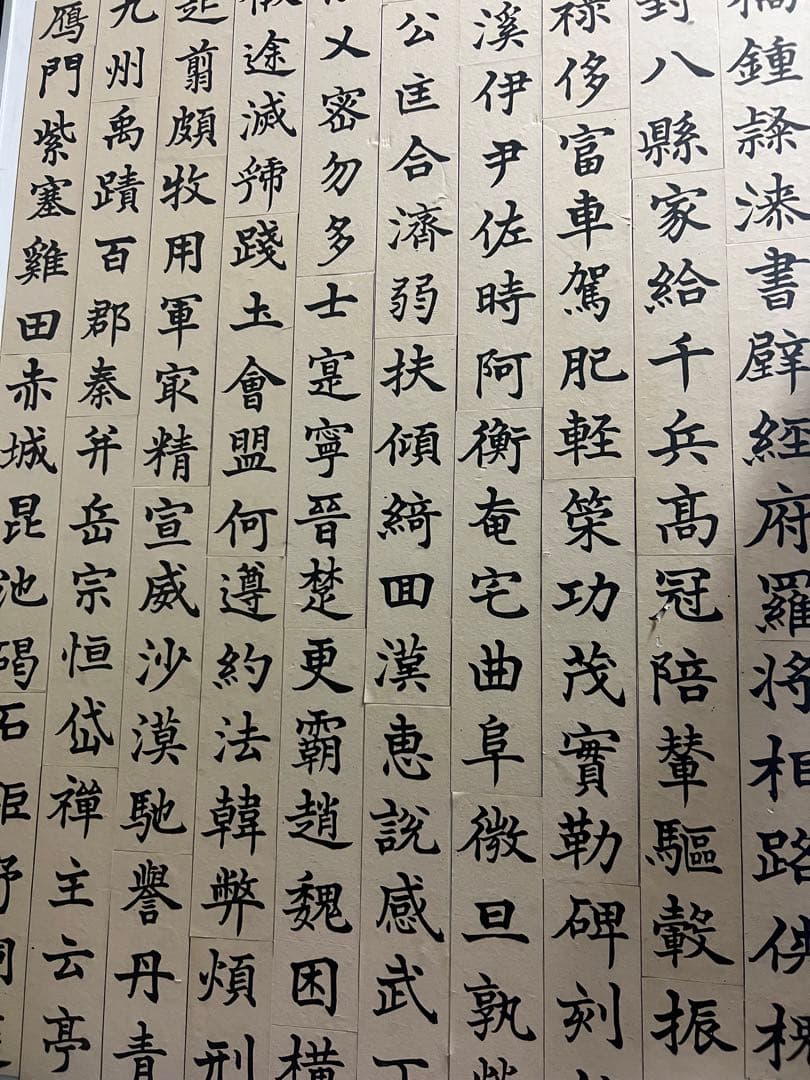 鍾隸漆書壁經府羅將相路侠槐
封八縣家給千兵髙冠陪輦驅轂振
祿侈富車駕肥軽策功茂實勒碑刻
溪伊尹佐時阿衡奄宅曲阜微旦孰
公匡合濟弱扶傾綺囬漢恵說感武丁
乂密勿多士寔寧晉楚更霸趙魏困橫
途滅虢踐土會盟何遵約法韓弊煩刑
起翦頗牧用軍冣精宣威沙漠馳譽丹青
九州禹蹟百郡秦并岳宗恒岱禪主云亭
鴈門紫塞雞田赤城昆池碣石鉅野洞